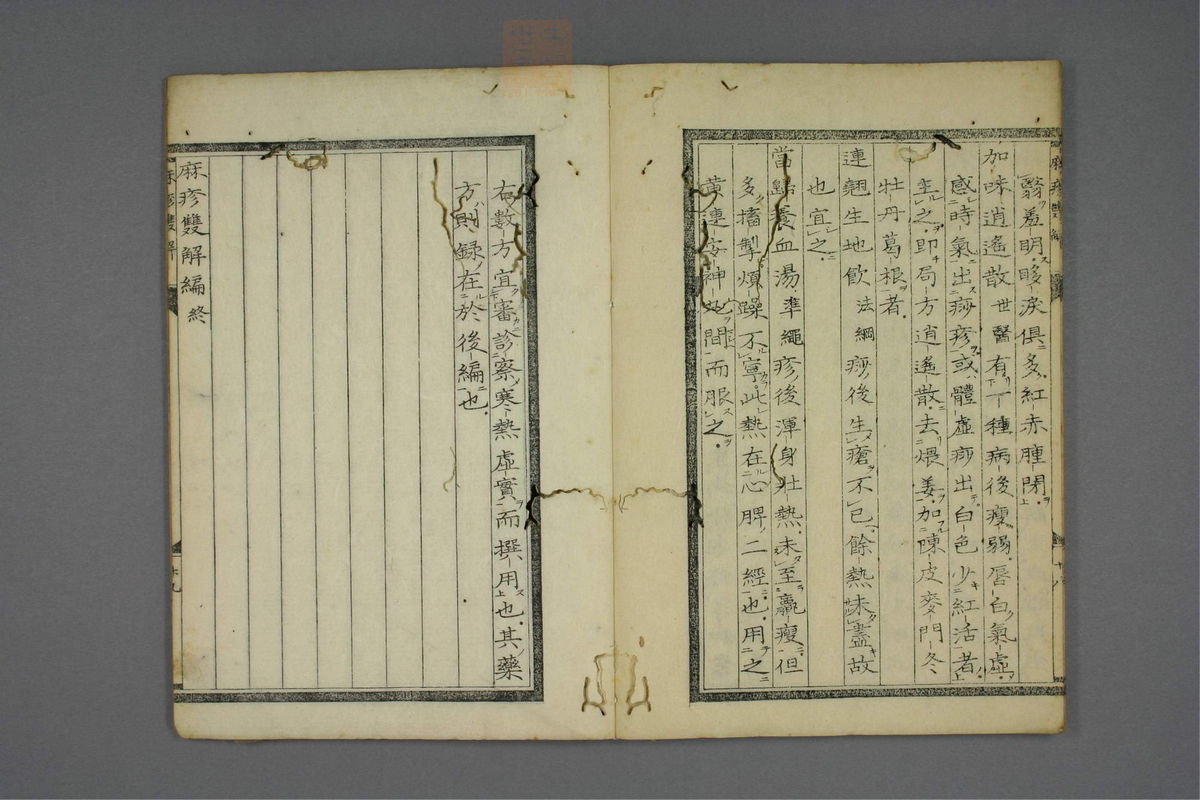 翳羞明眵淚俱多紅赤腫閉
加味逍遙散 世醫有下一種病後瘦弱唇白氣虛
感時氣出痧疹或體虛痧出白色少紅活者上
主之即局方逍遙散去煨姜加陳皮麥門冬
牡丹葛根者
連翹生地飲 法綱 痧後生瘡不已餘熱未盡故
也宜之
當歸養血湯 準繩 疹後渾身壯熱未至羸瘦但
多搐掣煩躁不寧此熱在心脾二經也用之
黃連安神丸間而服之
右數方宜審診察寒熱虛實而撰用也其藥
方則録在於後編也
麻疹雙解編終
麻疹雙解
十九